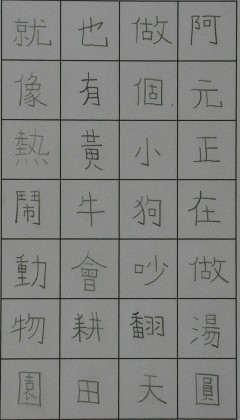 阿元正在做湯圓
做個小狗吵翻天
也有黃牛會耕田
就像熱鬧動物園